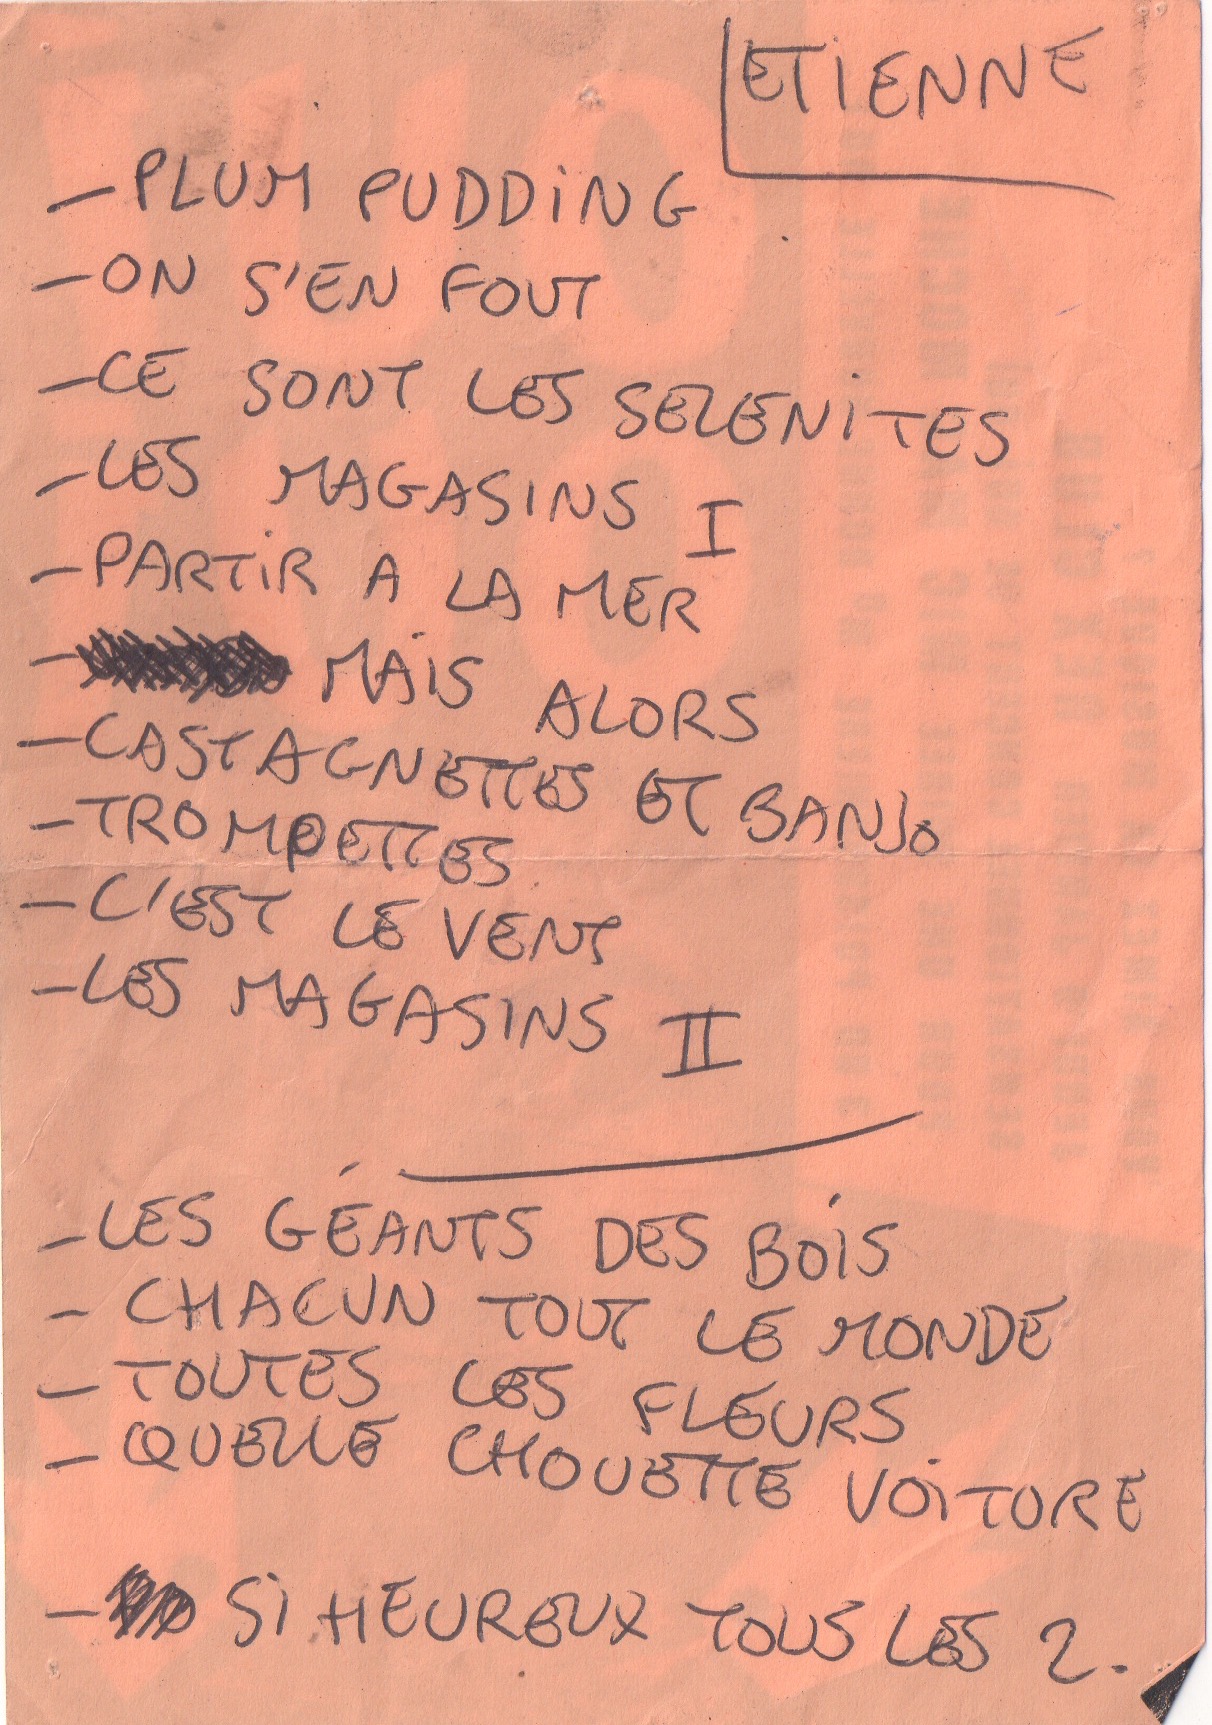 ETIENNE
- PLUM PUDDING
- ON S'EN FOUT
- CE SONT LES SELENITES
- LES MAGASINS I
- PARTIR A LA MER
- MAIS ALORS
- CASTAGNETTES ET BANJO
- TROMPETTES
- C'EST LE VENT
- LES MAGASINS II
- LES GÉANTS DES BOIS
- CHACUN TOUT LE MONDE
- TOUTES LES FLEURS
- QUELLE CHOUETTE VOITURE
- SI HEUREUX TOUS LES 2.